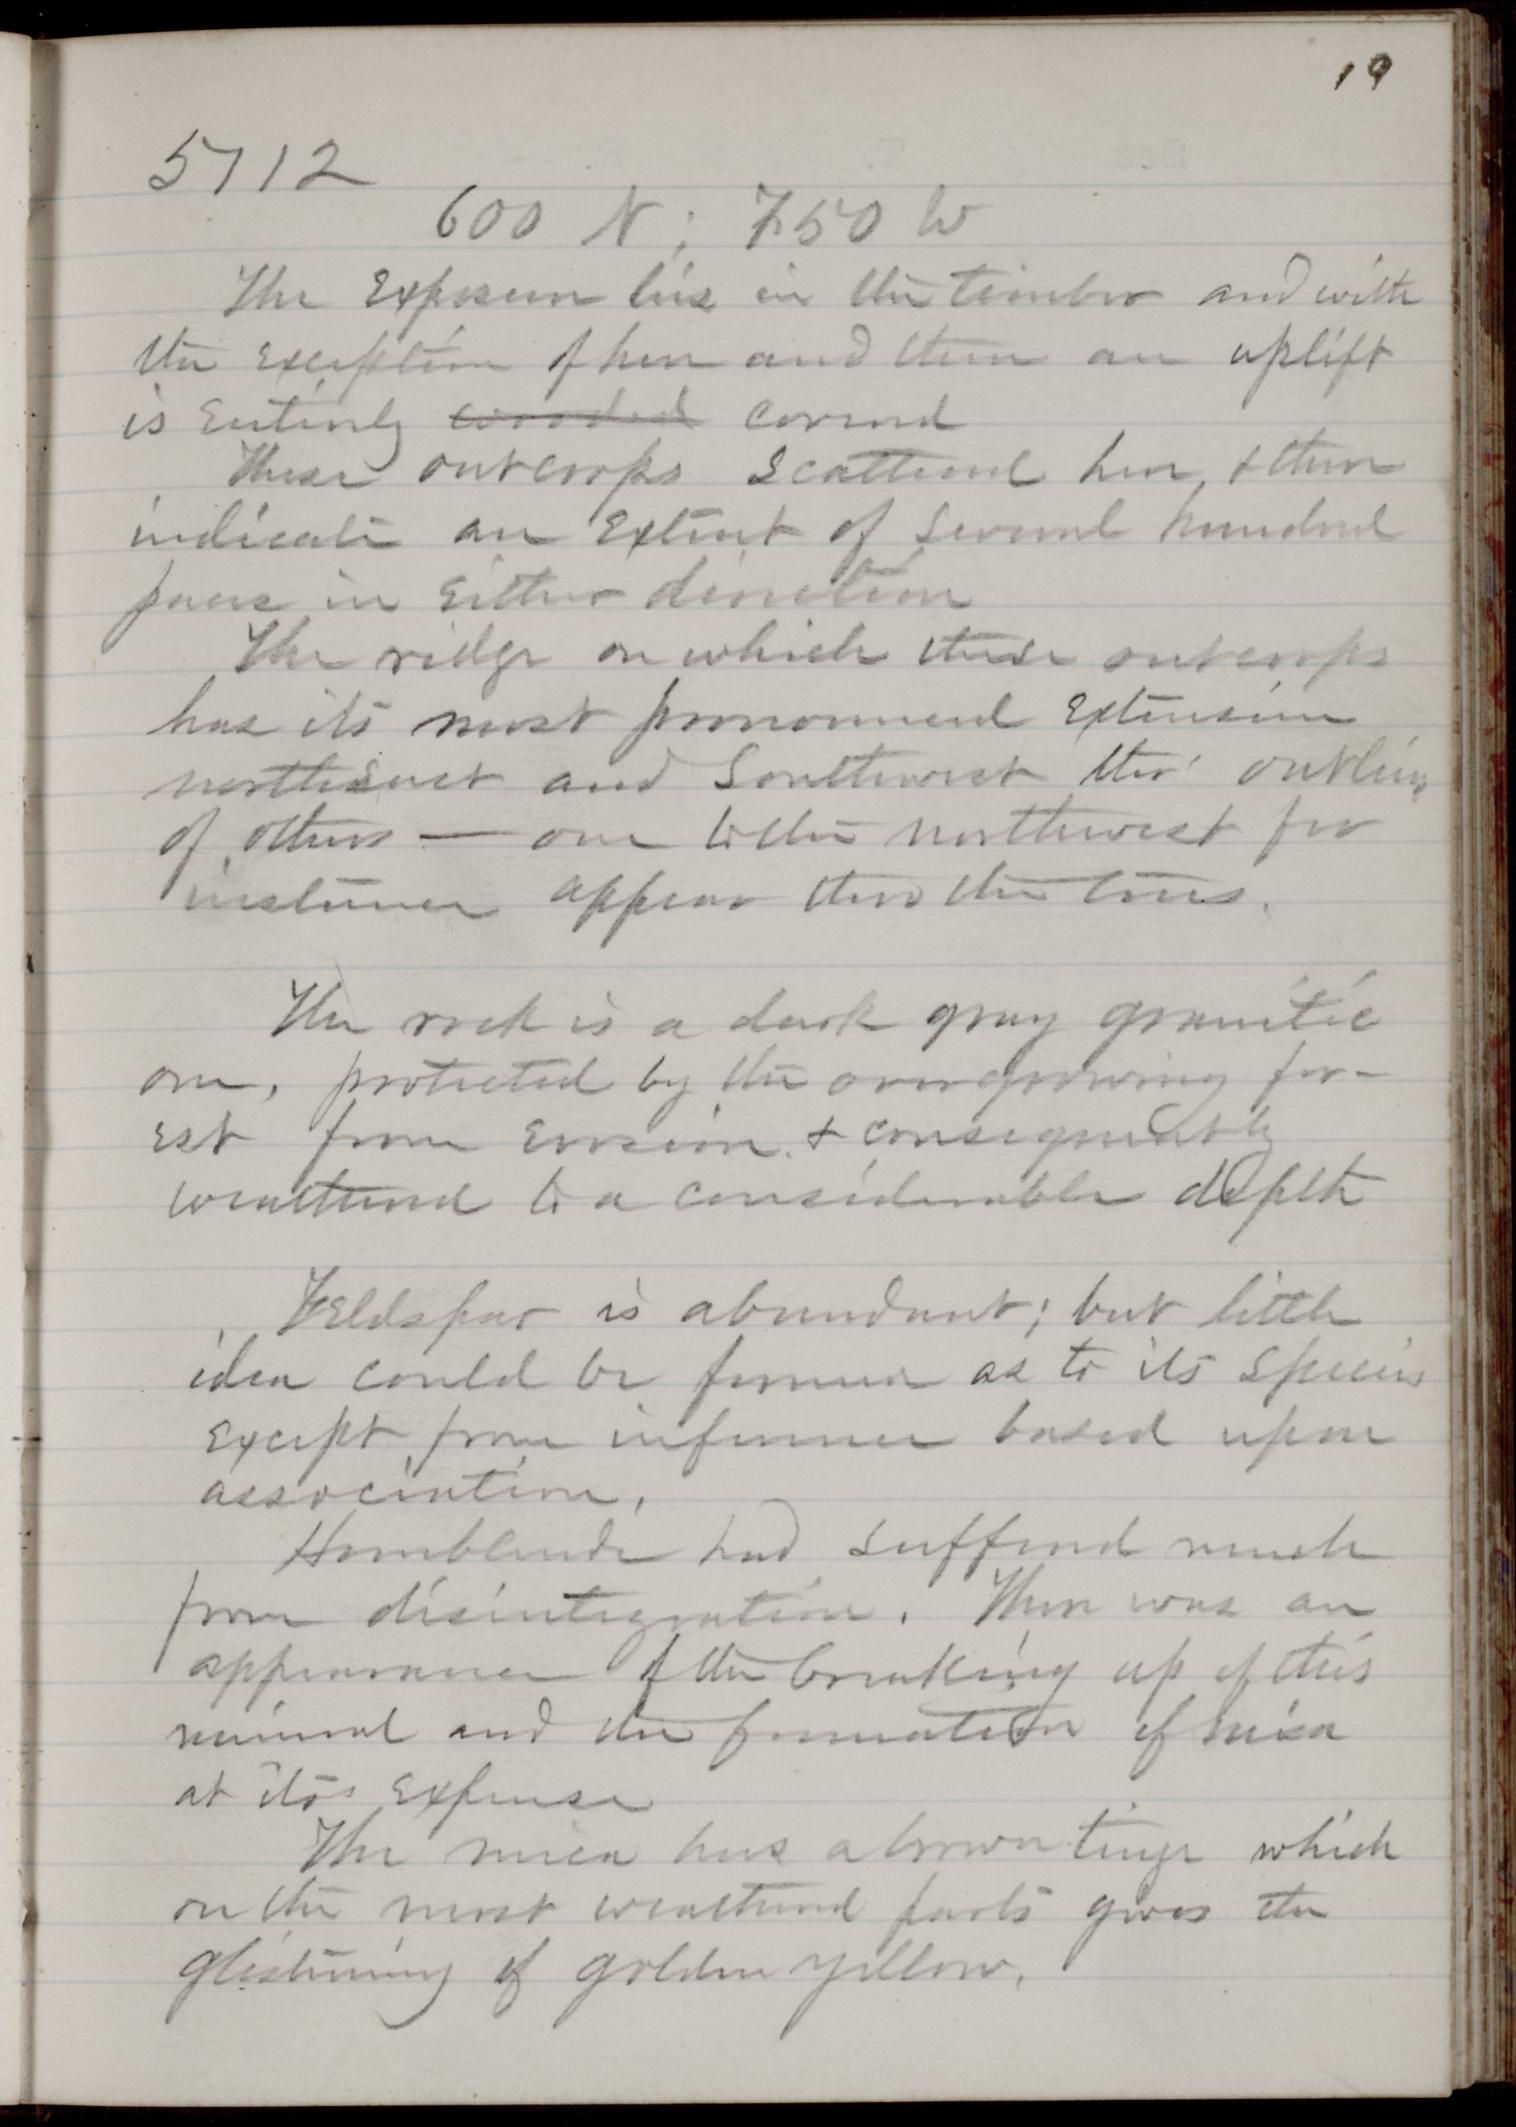 19
5712
600 N; 750 W
The Exposure lies in the timber and with
the Exception of here and there an uplift
is Entirely wooded covered
These outcrops Scattered here & there
indicate an Extent of Several hundred
paces in Either direction
The ridge on which these outcrops
has its most pronounced Extension
northeast and Southwest tho' outlines
of others — one to the northwest for
instance appear thro the trees.
The rock is a dark gray granitic
one, protected by the overgrowing for-
est from Erosion & consequently
weathered to a considerable depth
Feldspar is abundant; but little
idea could be formed as to its Species
Except from inference based upon
association.
Hornblende had suffered much
from disintegration. There was an
appearance of the breaking up of this
mineral and the formation of mica
at its Expense
The mica has a brown tinge which
on the most weathered parts gives the
glistening of golden yellow.